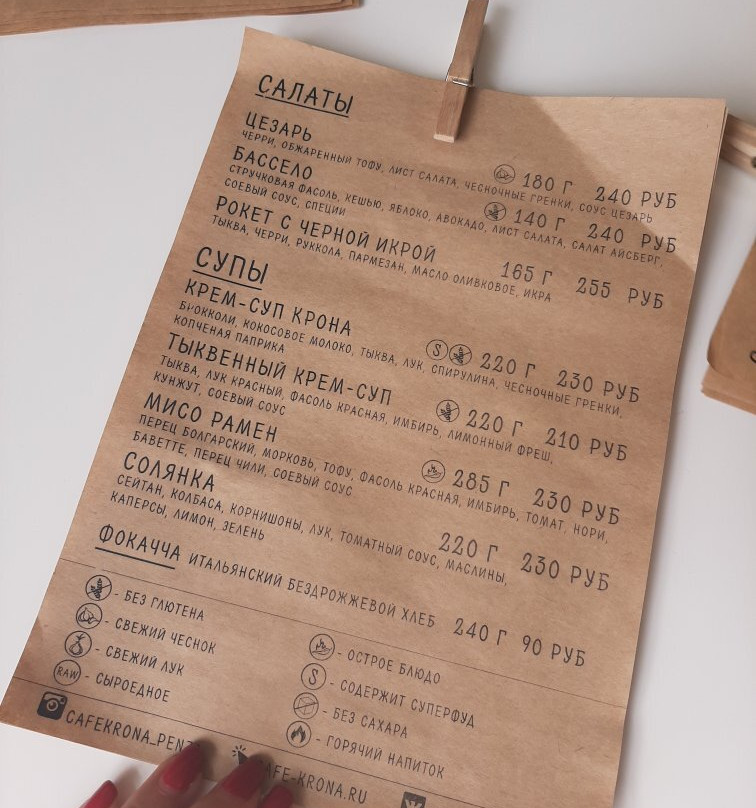 САЛАТЫ
ЦЕЗАРЬ 180 Г 240 РУБ
ЧЕРРИ, ОБЖАРЕННЫЙ ТОФУ, ЛИСТ САЛАТА, ЧЕСНОЧНЫЕ ГРЕНКИ, СОУС ЦЕЗАРЬ
БАССЕЛО 140 Г 240 РУБ
СТРУЧКОВАЯ ФАСОЛЬ, КЕШЬЮ, ЯБЛОКО, АВОКАДО, ЛИСТ САЛАТА, САЛАТ АЙСБЕРГ,
СОЕВЫЙ СОУС, СПЕЦИИ
РОКЕТ С ЧЕРНОЙ ИКРОЙ 165 Г 255 РУБ
ТЫКВА, ЧЕРРИ, РУККОЛА, ПАРМЕЗАН, МАСЛО ОЛИВКОВОЕ, ИКРА
СУПЫ
КРЕМ-СУП КРОНА S 220 Г 230 РУБ
БРОККОЛИ, КОКОСОВОЕ МОЛОКО, ТЫКВА, ЛУК, СПИРУЛИНА, ЧЕСНОЧНЫЕ ГРЕНКИ,
КОПЧЕНАЯ ПАПРИКА
ТЫКВЕННЫЙ КРЕМ-СУП 220 Г 210 РУБ
ТЫКВА, ЛУК КРАСНЫЙ, ФАСОЛЬ КРАСНАЯ, ИМБИРЬ, ЛИМОННЫЙ ФРЕШ,
КУНЖУТ, СОЕВЫЙ СОУС
МИСО РАМЕН 285 Г 230 РУБ
ПЕРЕЦ БОЛГАРСКИЙ, МОРКОВЬ, ТОФУ, ФАСОЛЬ КРАСНАЯ, ИМБИРЬ, ТОМАТ, НОРИ,
БАВЕТТЕ, ПЕРЕЦ ЧИЛИ, СОЕВЫЙ СОУС
СОЛЯНКА 220 Г 230 РУБ
СЕЙТАН, КОЛБАСА, КОРНИШОНЫ, ЛУК, ТОМАТНЫЙ СОУС, МАСЛИНЫ,
КАПЕРСЫ, ЛИМОН, ЗЕЛЕНЬ
ФОКАЧЧА ИТАЛЬЯНСКИЙ БЕЗДРОЖЖЕВОЙ ХЛЕБ 240 Г 90 РУБ
- БЕЗ ГЛЮТЕНА
- СВЕЖИЙ ЧЕСНОК
- СВЕЖИЙ ЛУК
RAW - СЫРОЕДНОЕ
- ОСТРОЕ БЛЮДО
S - СОДЕРЖИТ СУПЕРФУД
- БЕЗ САХАРА
- ГОРЯЧИЙ НАПИТОК
CAFEKRONA_PENZ
AFE-KRONA.RU